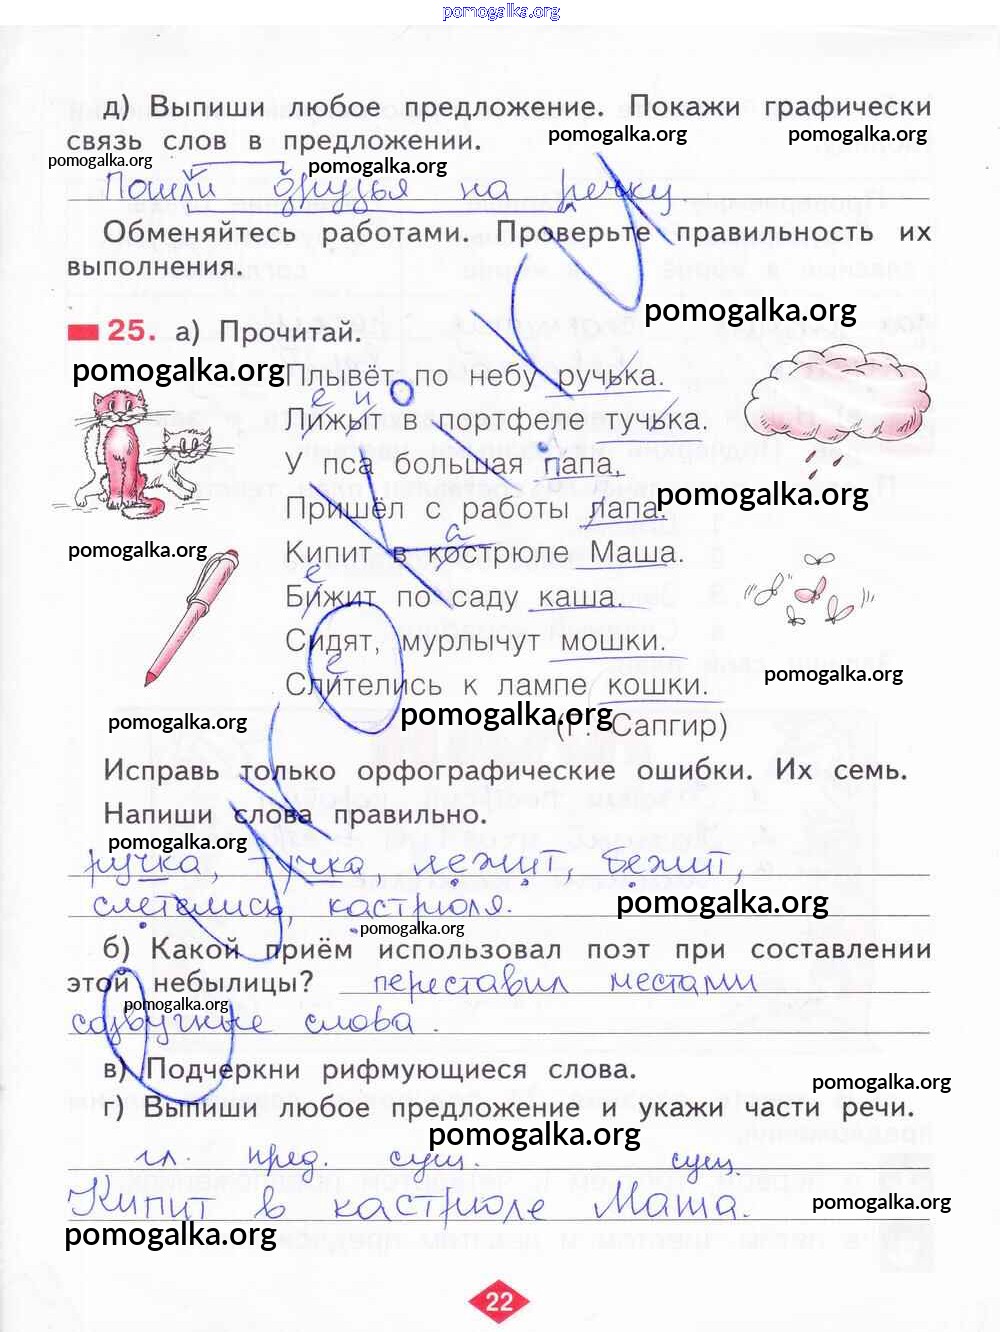 pomogalka.org
д) Выпиши любое предложение. Покажи графически
связь слов в предложении.
pomogalka.org pomogalka.org
pomogalka.org pomogalka.org
Пошли друзья на речку
Обменяйтесь работами. Проверьте правильность их
выполнения.
pomogalka.org
25. а) Прочитай.
pomogalka.org
Плывёт по небу ручька.
е и
Лижыт в портфеле тучька.
У пса большая папа.
pomogalka.org
Пришёл с работы лапа.
а
pomogalka.org
Кипит в кострюле Маша.
е
Бижит по саду каша.
Сидят, мурлычут мошки.
е
pomogalka.org
Слителись к лампе кошки.
pomogalka.org pomogalka.org
(Г. Сапгир)
Исправь только орфографические ошибки. Их семь.
Напиши слова правильно.
ручка, тучка, лежит, бежит,
слетелись, кастрюля.
pomogalka.org
pomogalka.org
б) Какой приём использовал поэт при составлении
этой небылицы? переставил местами
pomogalka.org
созвучные слова.
в) Подчеркни рифмующиеся слова.
pomogalka.org
г) Выпиши любое предложение и укажи части речи.
pomogalka.org
гл. пред. сущ. сущ.
Кипит в кастрюле Маша.
pomogalka.org
pomogalka.org
22